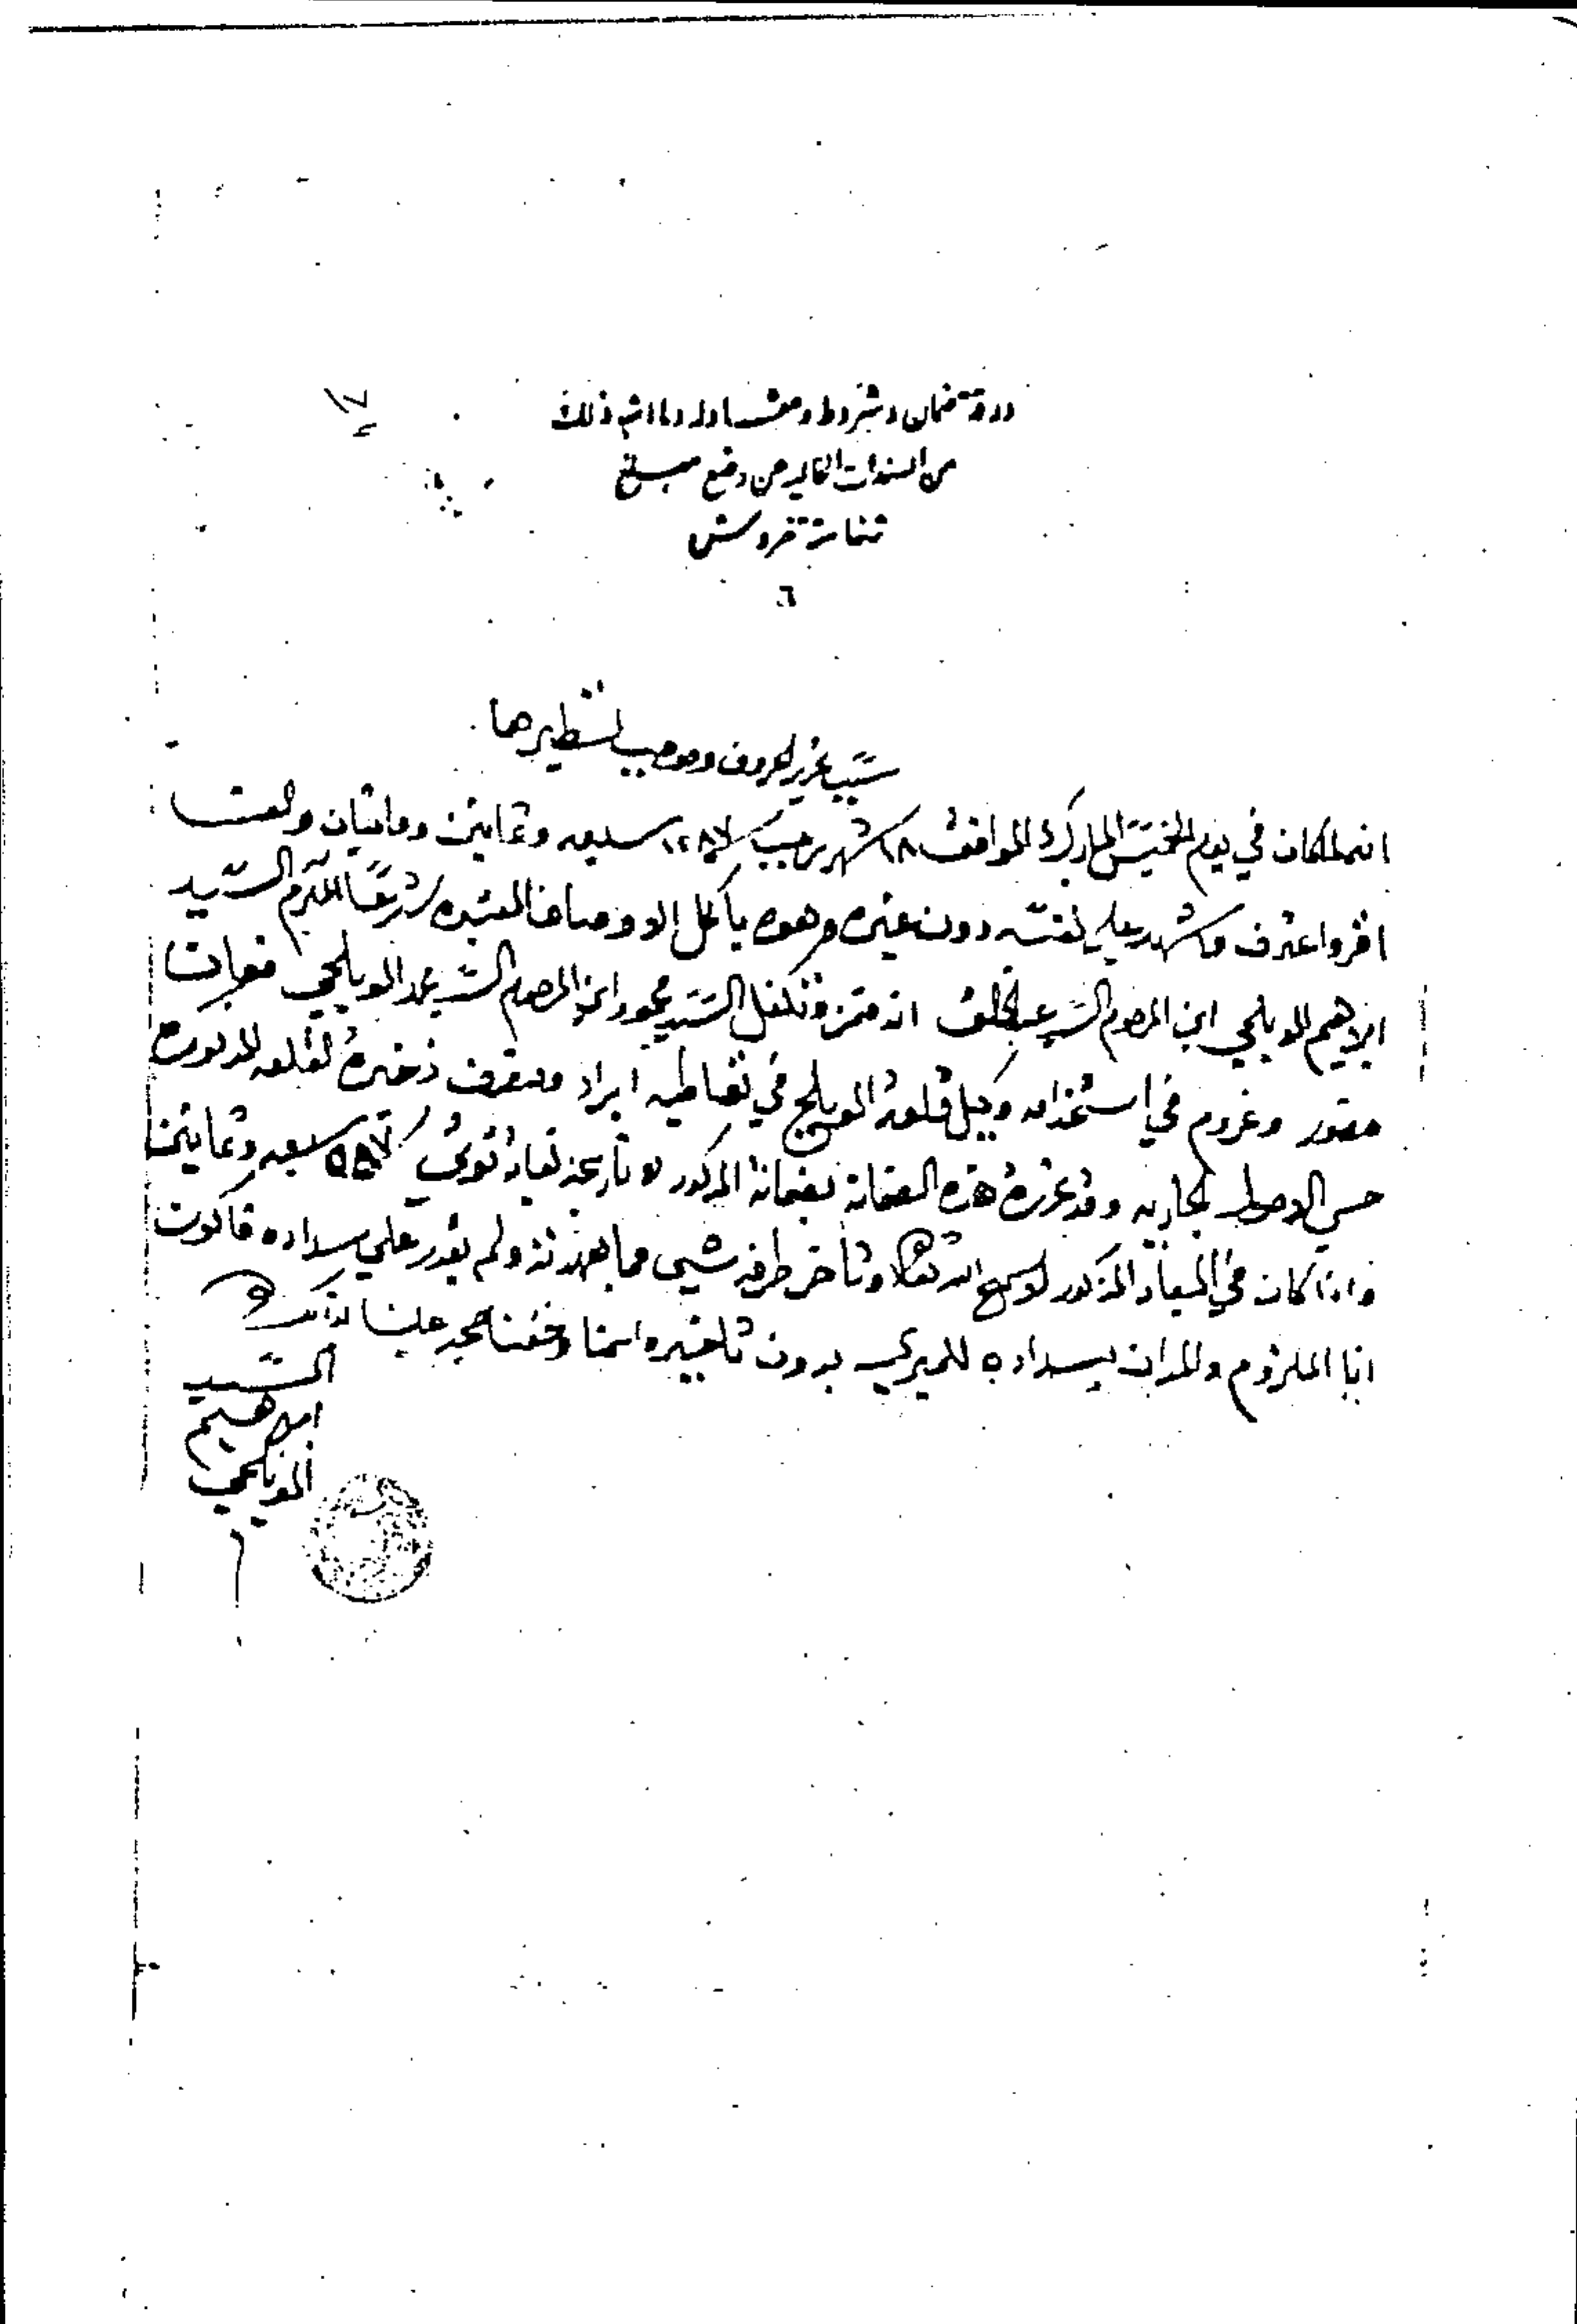 ورقة ضمان وشروط ومقاوله وما اشبه ذلك
من السندات الخاليه من وضع مبلغ
ثمنها قروش
٦
سبب تحرير الحروف وموجب لتسطيرها
انه لما كان في يوم الخميس المبارك الموافق ١٨ شهر رجب ١٢٨٧ سبعه وثمانين ومايتان والف
اقر واعترف واشهد علي نفسه دون غيره وهو باكمل الاوصاف المعتبره شرعًا المكرم السيد
ابراهيم المويلحي ابن المرحوم السيد عبد الخالق انه ضمن وتكفل السيد محمود ابن المرحوم السيد محمد المويلحي
حضور وغروم في استخدامه وكيل قلعة المويلح في تعاطيه ايراد ومنصرف ذخيرة القلعه المذكوره
حسب الاصول الجاريه وقد تحررة هذه الضمانه بضمانة المذكور لا تاريخه توتي ٨٧ سبعه وثمانين
واذا كان في الميعاد المذكور لا سمح الله تعالا وتاخر طرفه شيي مما بعهدته ولم يقدر علي سداده فاكون
انا الملزوم والمدان بسداده للميري بدون تاخير واسمنا وختمنا حجه علينا بذلك
السيد
ابراهيم
المويلحي